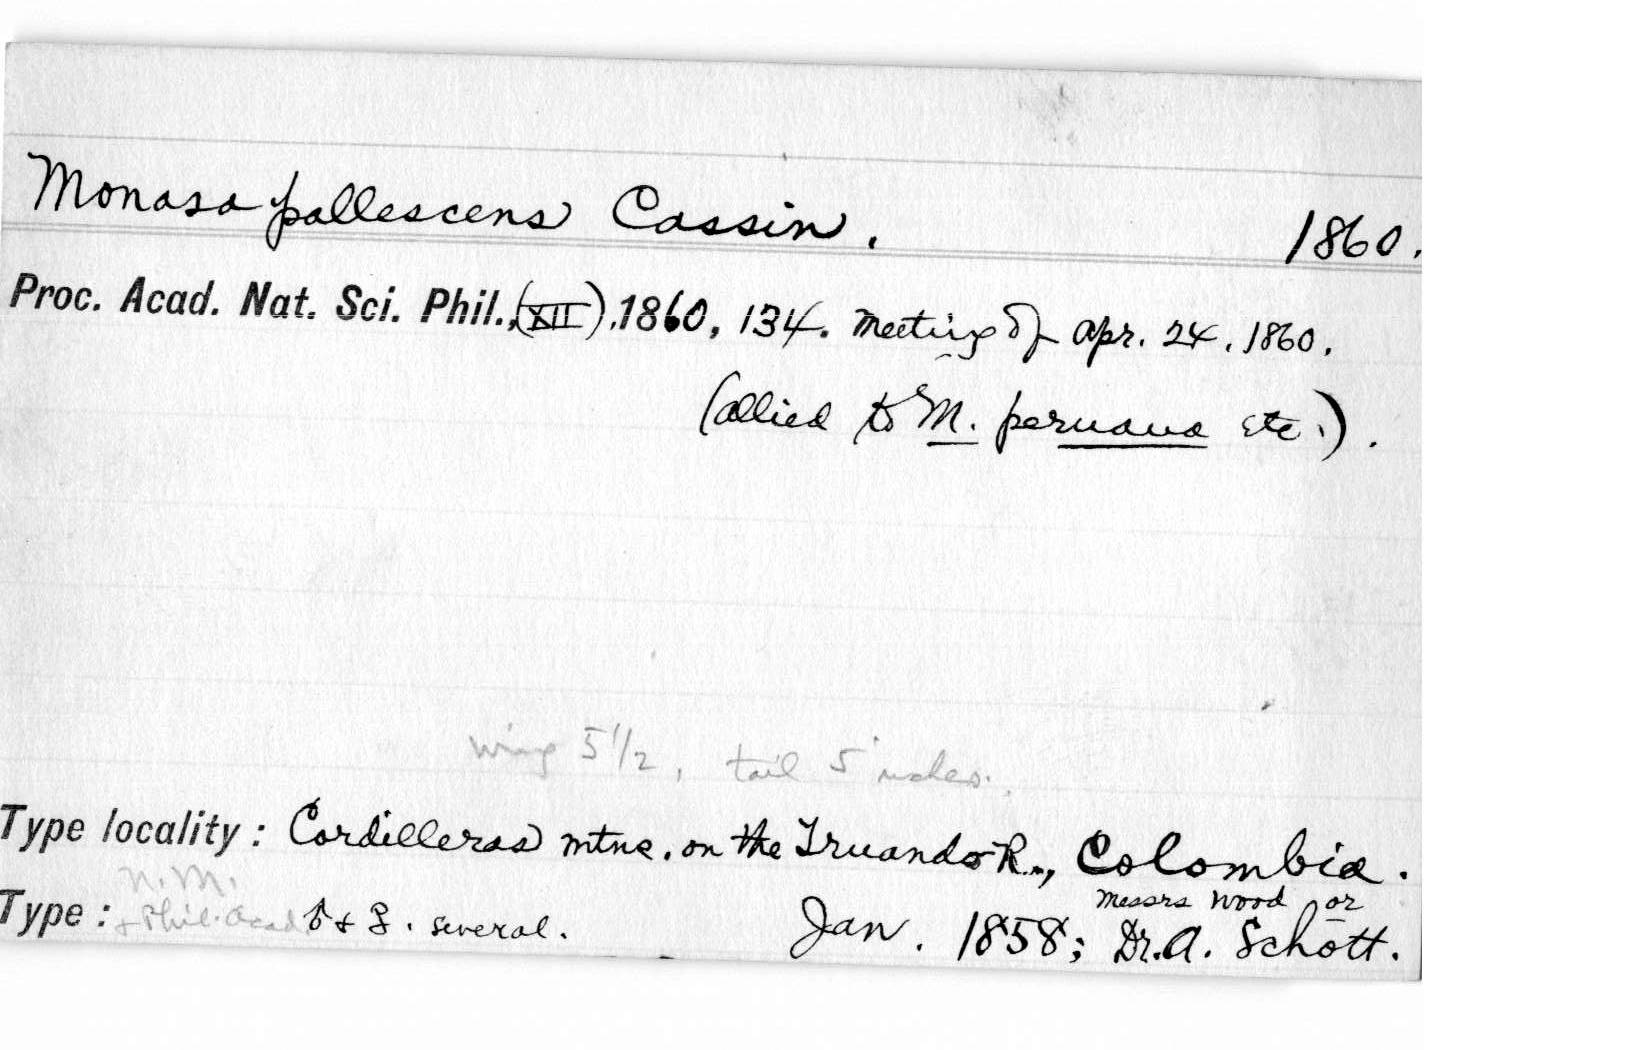 Monasa pallescens Cassin. 1860.
Proc. Acad. Nat. Sci. Phil., (XII). 1860, 134. Meeting of Apr. 24, 1860.
(allied to M. peruana etc.).
wing 5 1/2, tail 5 inches.
Type locality: Cordilleras mtns. on the Truando R., Colombia.
N.M.
Messrs Wood or
Type: + Phil. Acad ♂ + ♀. several. Jan. 1858; Dr. A. Schott.